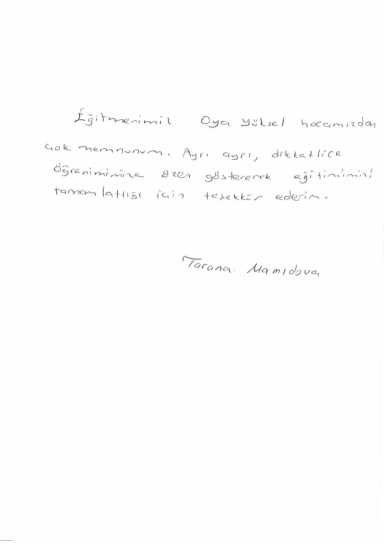 Eğitmenimiz Oya Yüksel hocamızdan
çok memnunum. Ayrı ayrı, dikkatlice
öğrenimimize özen göstererek eğitimimizi
tamamlattığı için teşekkür ederim.
Tarana Mamıdova